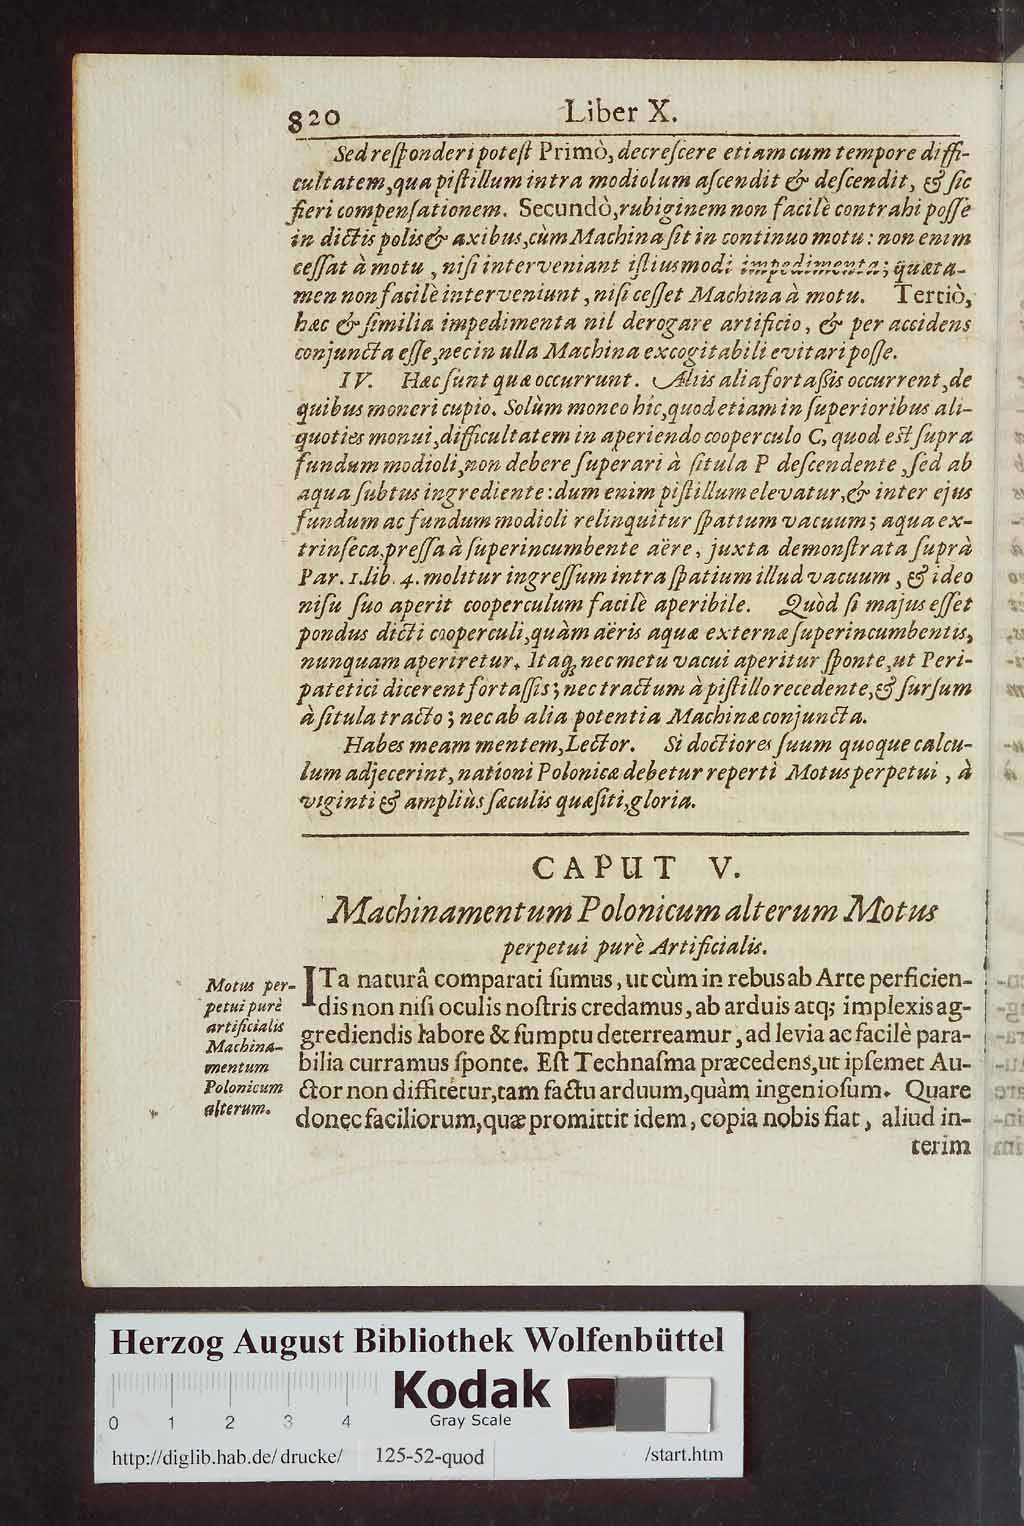 820 Liber X.
Sed reſponderi poteſt Primò, decreſcere etiam cum tempore diffi-
cultatem, qua piſtillum intra modiolum aſcendit & deſcendit, & ſic
fieri compenſationem. Secundò, rubiginem non facilè contrahi poſſe
in dictis polis & axibus, cùm Machina ſit in continuo motu: non enim
ceſſat à motu, niſi interveniant iſtiusmodi impedimenta; quæ ta-
men non facilè interveniunt, niſi ceſſet Machina à motu. Tertiò,
hæc & ſimilia impedimenta nil derogare artificio, & per accidens
conjuncta eſſe, nec in ulla Machina excogitabili evitari poſſe.
IV. Hæc ſunt quæ occurrunt. Aliis alia fortaſſis occurrent, de
quibus moneri cupio. Solùm moneo hîc, quod etiam in ſuperioribus ali-
quoties monui, difficultatem in aperiendo cooperculo C, quod eſt ſupra
fundum modioli, non debere ſuperari à ſitula P deſcendente, ſed ab
aqua ſubtus ingrediente: dum enim piſtillum elevatur, & inter ejus
fundum ac fundum modioli relinquitur ſpatium vacuum; aqua ex-
trinſeca, preſſa à ſuperincumbente aëre, juxta demonſtrata ſuprà
Par. 1. lib. 4. molitur ingreſſum intra ſpatium illud vacuum, & ideo
niſu ſuo aperit cooperculum facilè aperibile. Quòd ſi majus eſſet
pondus dicti cooperculi, quàm aëris aquæ externæ ſuperincumbentis,
nunquam aperiretur. Itaq; nec metu vacui aperitur ſponte, ut Peri-
patetici dicerent fortaſſis; nec tractum à piſtillo recedente, & ſurſum
à ſitula tracto; nec ab alia potentia Machinæ conjuncta.
Habes meam mentem, Lector. Si doctiores ſuum quoque calcu-
lum adjecerint, nationi Polonicæ debetur reperti Motus perpetui, à
viginti & ampliùs ſæculis quæſiti, gloria.
CAPUT V.
Machinamentum Polonicum alterum Motus
perpetui purè Artificialis.
Motus per-
petui purè
artificialis
Machina-
mentum
Polonicum
alterum.
ITa naturâ comparati ſumus, ut cùm in rebus ab Arte perficien-
dis non niſi oculis noſtris credamus, ab arduis atq; implexis ag-
grediendis labore & ſumptu deterreamur, ad levia ac facilè para-
bilia curramus ſponte. Eſt Technaſma præcedens, ut ipſemet Au-
ctor non diffitetur, tam factu arduum, quàm ingenioſum. Quare
donec faciliorum, quæ promittit idem, copia nobis fiat, aliud in-
terim
Herzog August Bibliothek Wolfenbüttel
Kodak
Gray Scale
0 1 2 3 4
http://diglib.hab.de/drucke/ 125-52-quod /start.htm